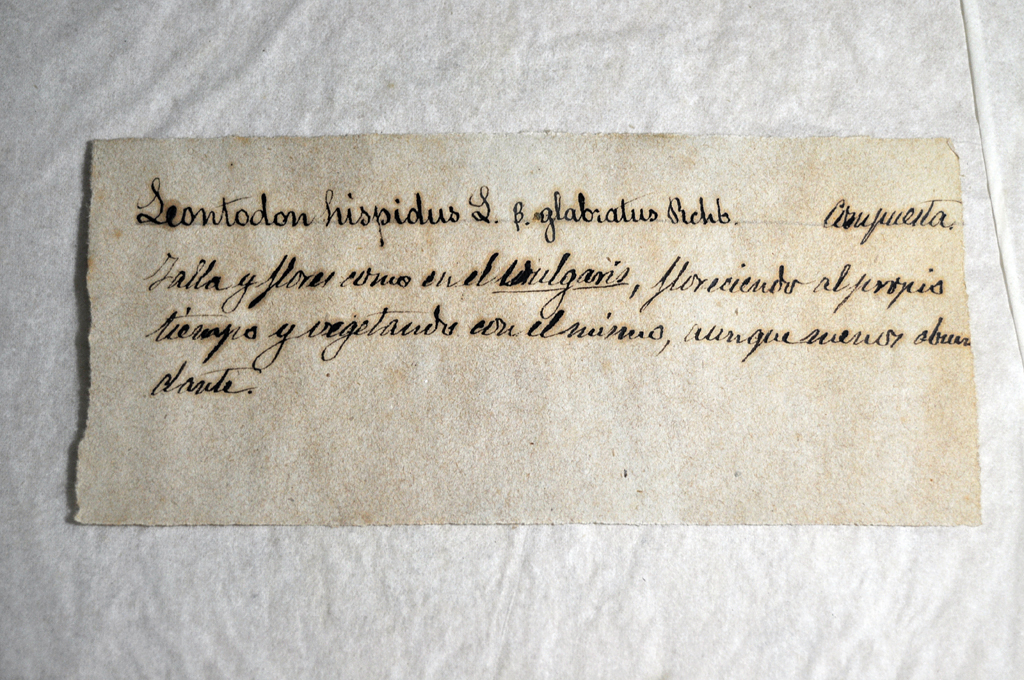 Leontodon hispidus L. β. glabratus Rchb. Compuesta.
Talla y flores como en el vulgaris, floreciendo al propio
tiempo y vegetando con el mismo, aunque menos abun
dante.